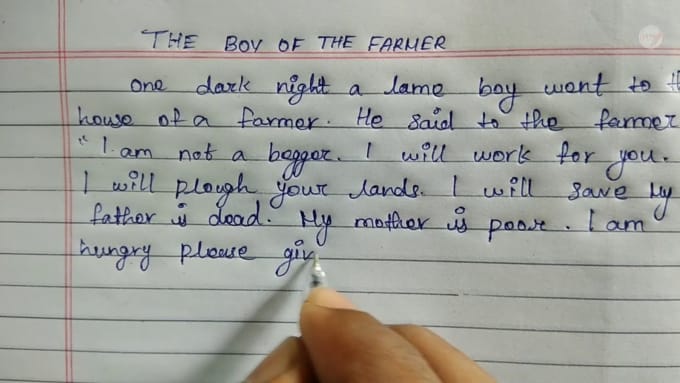 THE BOY OF THE FARMER
One dark night a lame boy went to th
house of a farmer. He said to the farmer
" I am not a begger. I will work for you.
I will plough your lands. I will save My
father is dead. My mother is poor. I am
hungry please giv